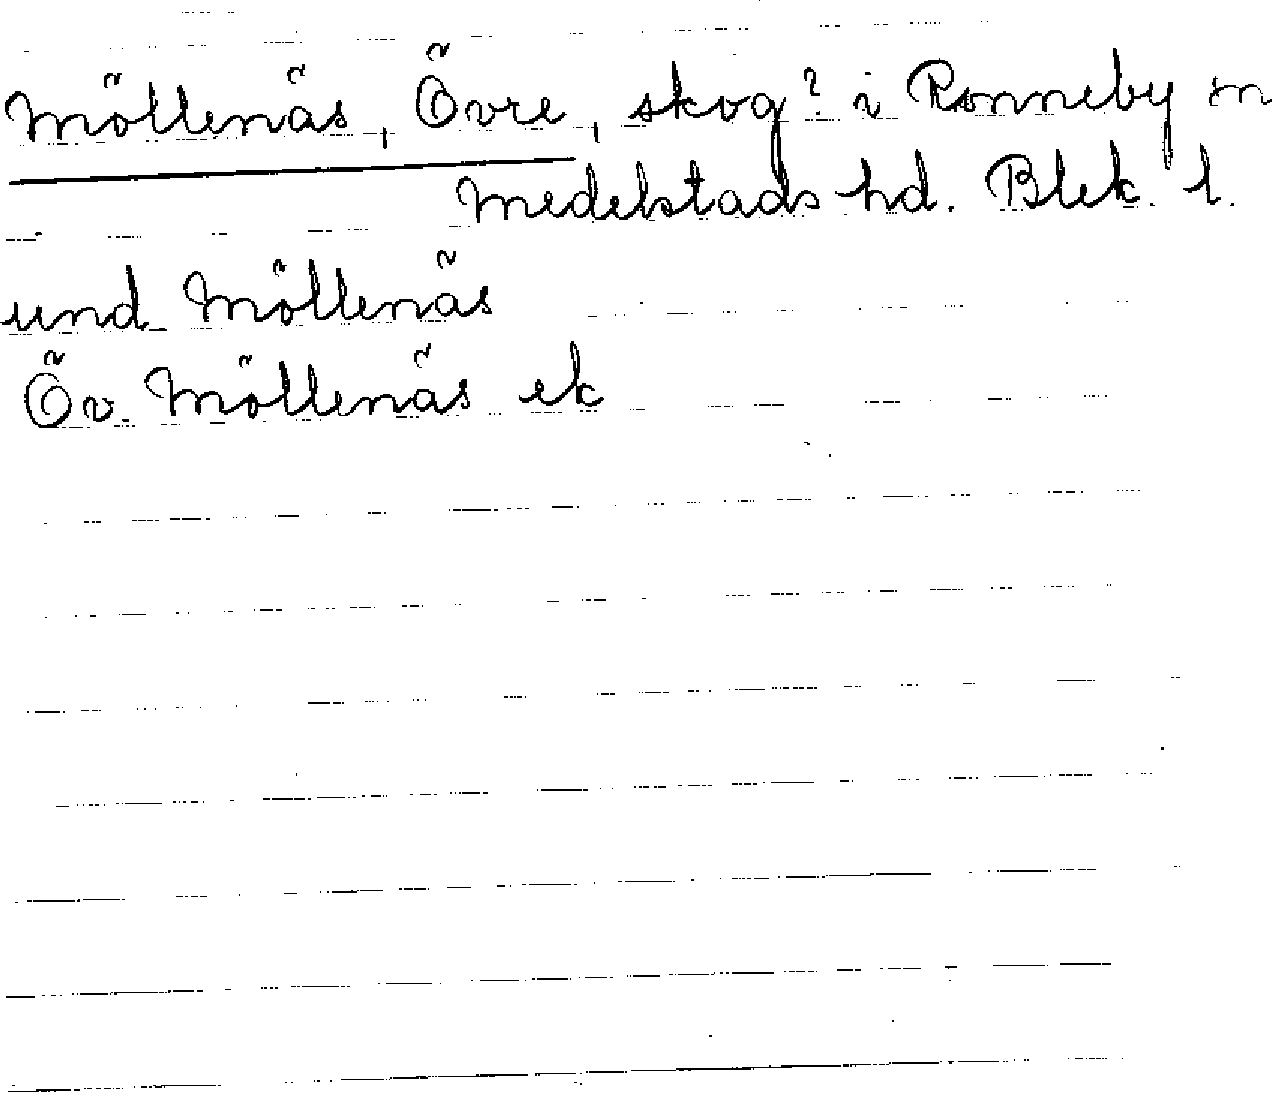 Möllenäs, Övre, skog? i Ronneby sn
Medelstads hd. Blek. l.
und Möllenäs
Öv. Möllenäs ek